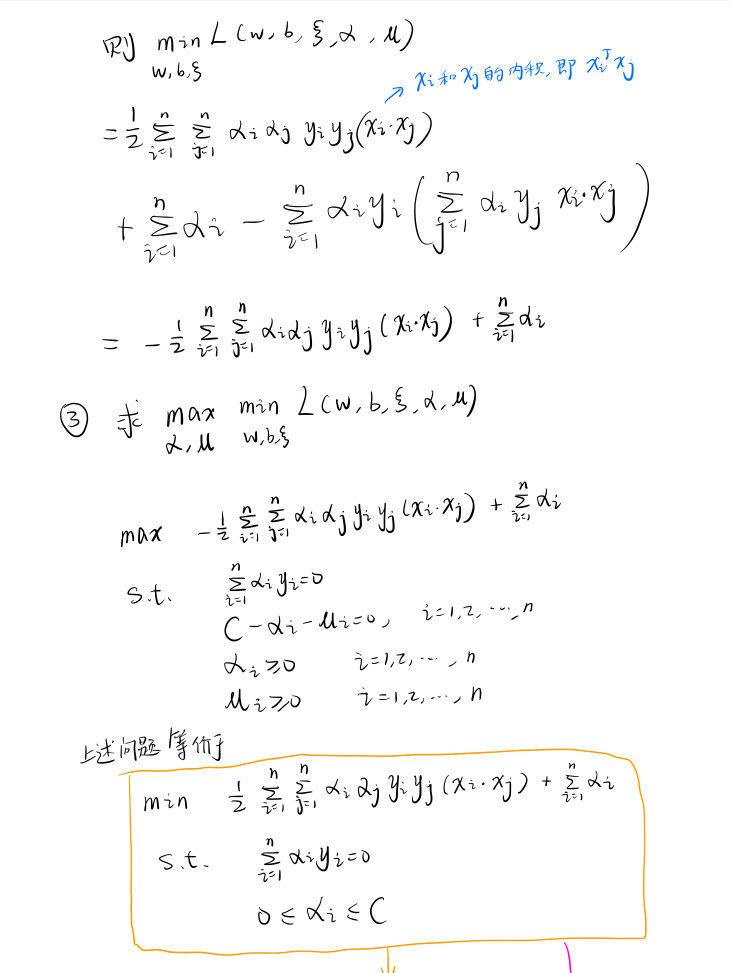 则 min L(w, b, ξ, α, μ)
w,b,ξ
xi和xj的内积,即 xiᵀxj
= 1/2 Σ(i=1→n) Σ(j=1→n) αi αj yi yj (xi·xj)
+ Σ(i=1→n) αi − Σ(i=1→n) αi yi ( Σ(j=1→n) αi yj xi·xj )
= −1/2 Σ(i=1→n) Σ(j=1→n) αi αj yi yj (xi·xj) + Σ(i=1→n) αi
③ 求 max min L(w, b, ξ, α, μ)
α,μ w,b,ξ
max −1/2 Σ(i=1→n) Σ(j=1→n) αi αj yi yj (xi·xj) + Σ(i=1→n) αi
s.t. Σ(i=1→n) αi yi=0
C−αi−μi=0, i=1,2,…,n
αi≥0 i=1,2,…,n
μi≥0 i=1,2,…,n
上述问题等价于
min 1/2 Σ(i=1→n) Σ(j=1→n) αi αj yi yj (xi·xj) + Σ(i=1→n) αi
s.t. Σ(i=1→n) αi yi=0
0 ≤ αi ≤ C